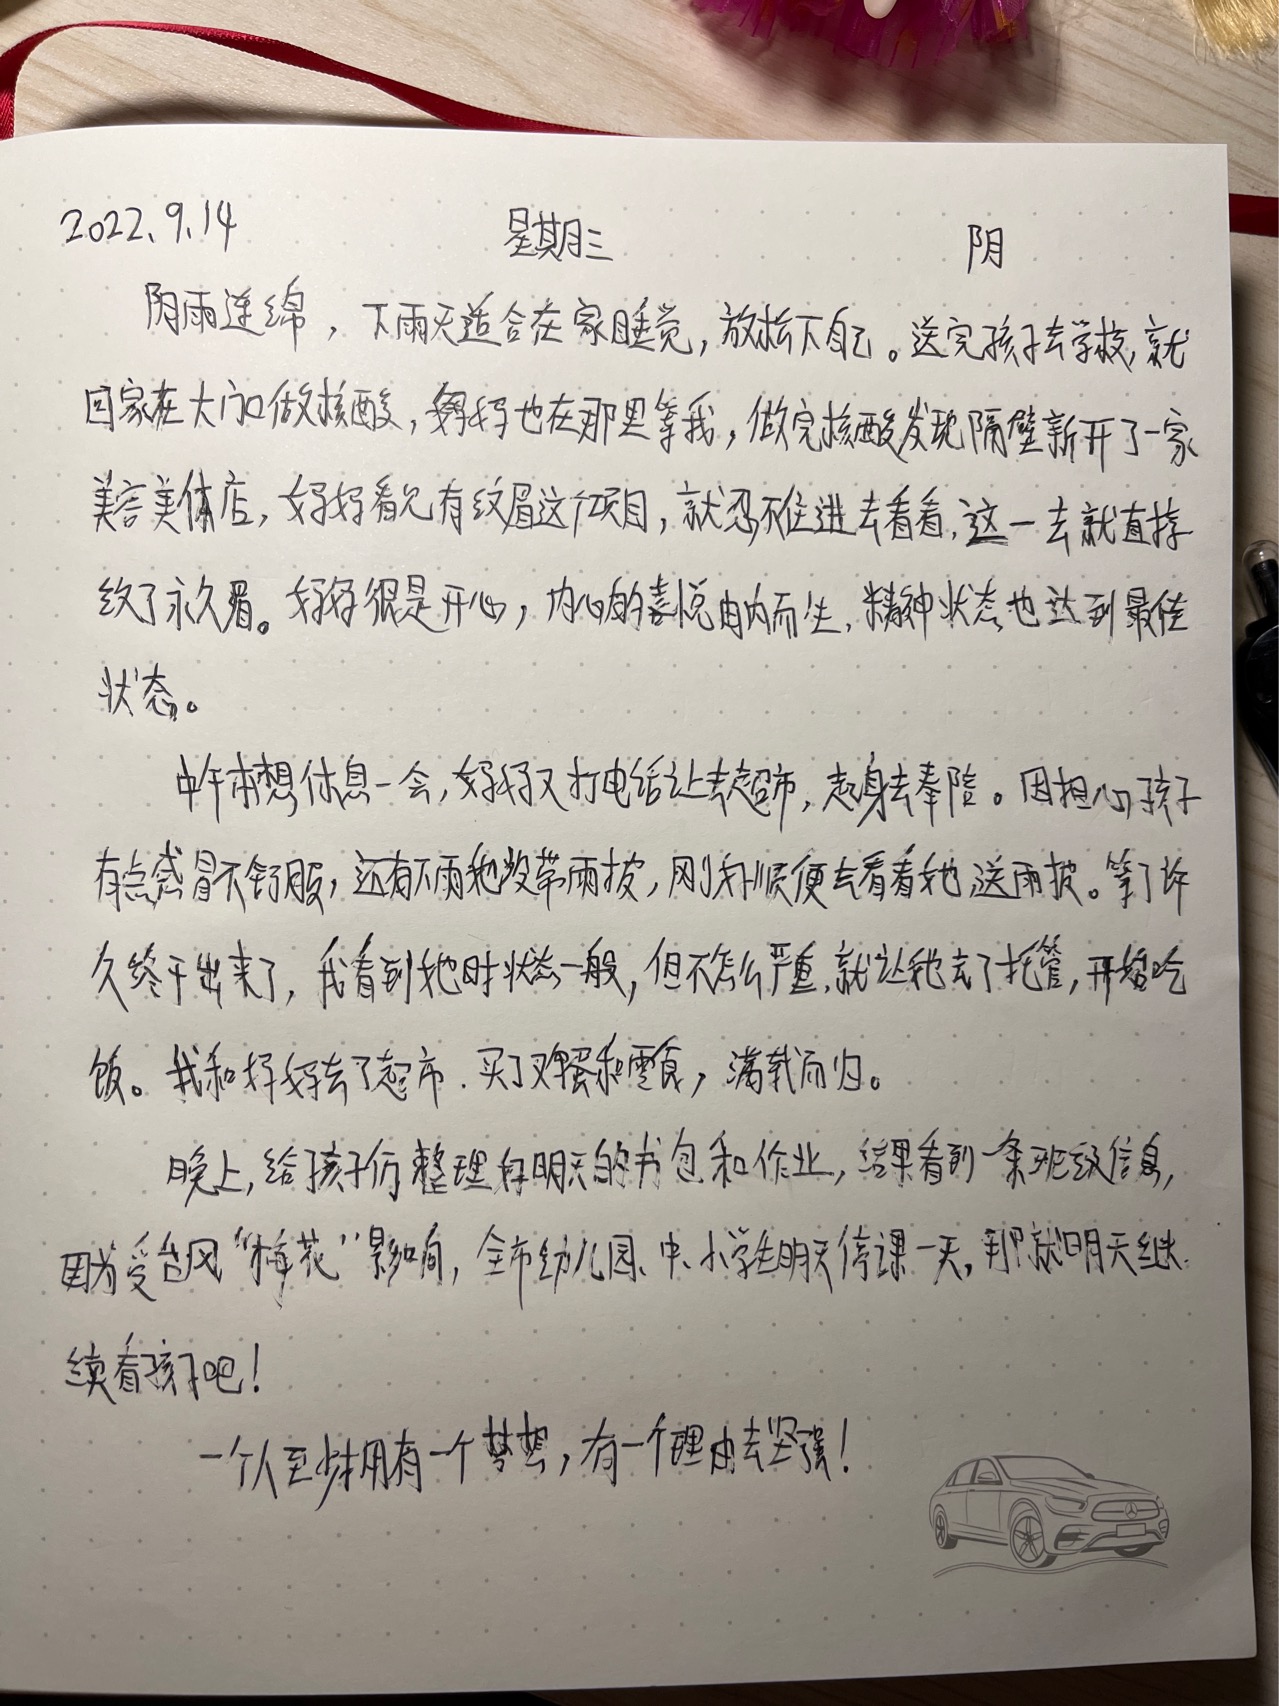 2022.9.14 星期三 阴
阴雨连绵，下雨天适合在家睡觉，放松下自己。送完孩子去学校，就
回家在大门口做核酸，好好也在那里等我，做完核酸发现隔壁新开了一家
美容美体店，好好看见有纹眉这个项目，就忍不住进去看看，这一去就直接
纹了永久眉。好好很是开心，内心的喜悦由内而生，精神状态也达到最佳
状态。
中午本想休息一会，好好又打电话让去超市，起身去奉陪。因担心孩子
有点感冒不舒服，还有下雨她没带雨披，刚好顺便去看看她，送雨披。等了许
久终于出来了，我看到她时状态一般，但不怎么严重，就让她去了托管，开始吃
饭。我和好好去了超市，买了鸡蛋和零食，满载而归。
晚上，给孩子们整理好明天的书包和作业，结果看到一条班级信息，
因为受台风“梅花”影响，全市幼儿园、中、小学生明天停课一天，那就明天继
续看孩子吧！
一个人至少拥有一个梦想，有一个理由去坚强！